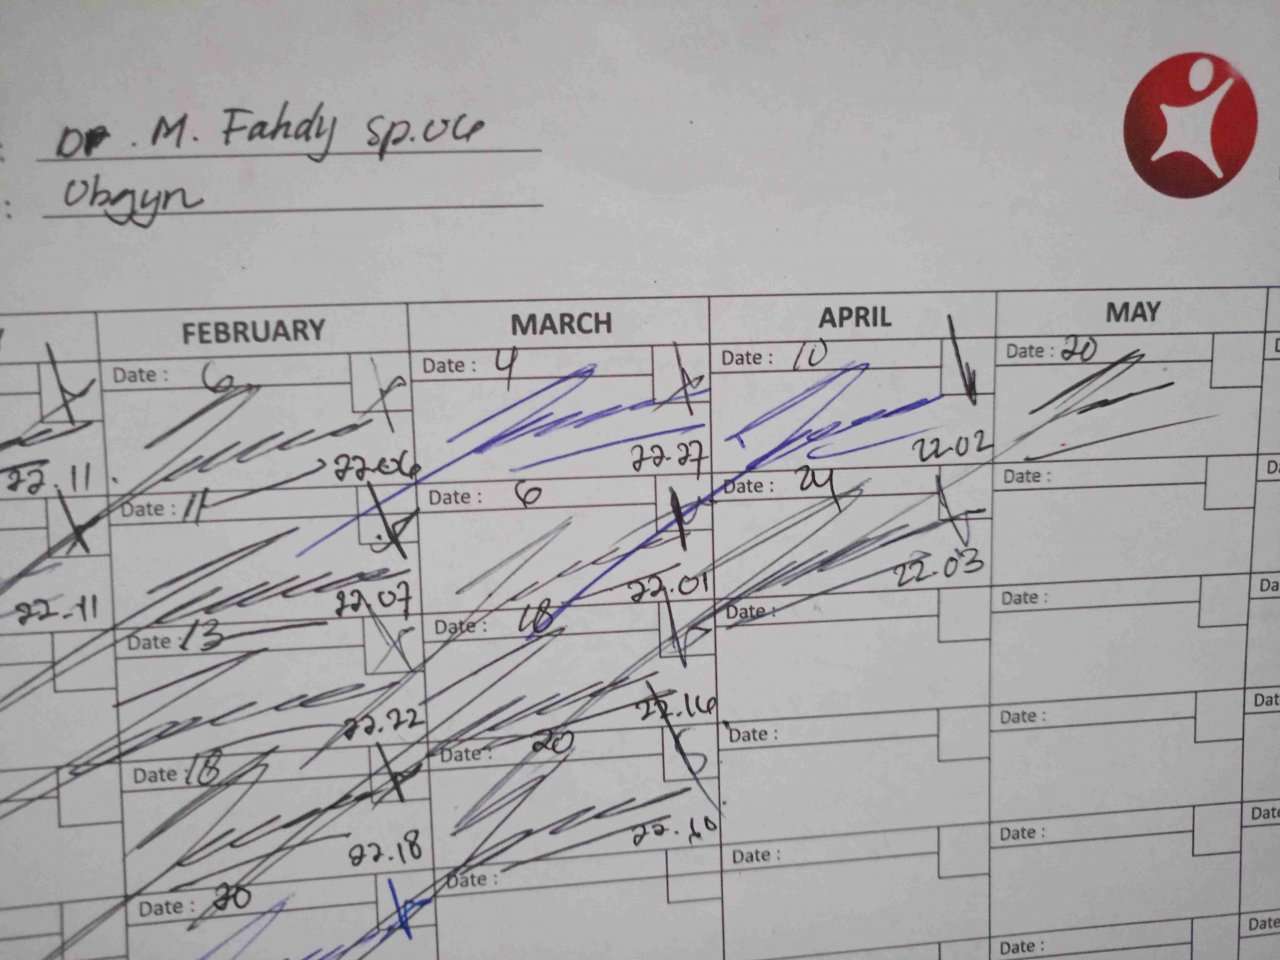 : Dr. M. Fahdy Sp.OG
: Obgyn
FEBRUARY MARCH APRIL MAY
Date : 6 Date : 4 Date : 10 Date : 20
22.11 22.06 22.27 22.02
Date : 11 Date : 6 Date : 24 Date :
22.11 22.07 22.01 22.03
Date : 13 Date : 18 Date : Date :
22.22 22.16
Date : 18 Date : 20 Date : Date :
22.18 22.10
Date : 20 Date : Date : Date :
Date :